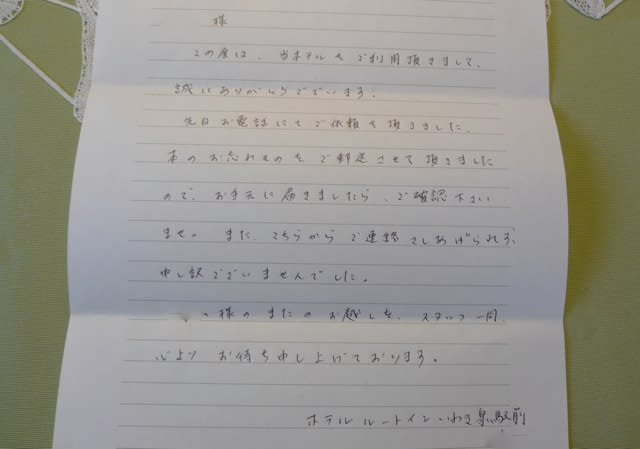 様
この度は、当ホテルをご利用頂きまして、
誠にありがとうございます。
先日お電話にてご依頼を頂きました、
本のお忘れものをご郵送させて頂きました
ので、お手元に届きましたら、ご確認下さい
ませ。また、こちらからご連絡さしあげられず、
申し訳ございませんでした。
様のまたのお越しを、スタッフ一同
心よりお待ち申し上げております。
ホテルルートインいわき泉駅前